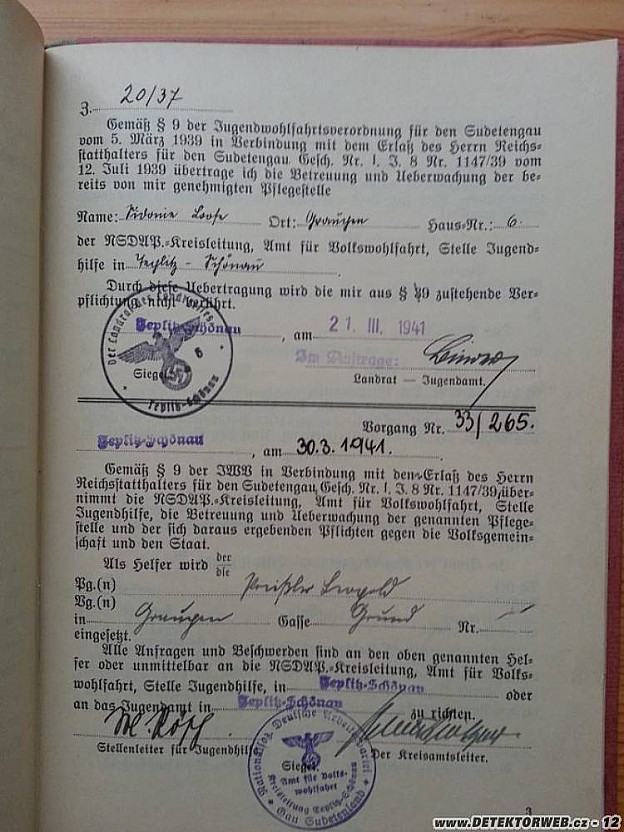 Z. 20/37
Gemäß § 9 der Jugendwohlfahrtsverordnung für den Sudetengau
vom 5. März 1939 in Verbindung mit dem Erlaß des Herrn Reichs-
statthalters für den Sudetengau Gesch. Nr. I. J. 8 Nr. 1147/39 vom
12. Juli 1939 übertrage ich die Betreuung und Ueberwachung der be-
reits von mir genehmigten Pflegestelle
Name: Sidonie Loose Ort: Graupen Haus-Nr.: 6.
der NSDAP.-Kreisleitung, Amt für Volkswohlfahrt, Stelle Jugend-
hilfe in Teplitz-Schönau
Durch diese Uebertragung wird die mir aus § 49 zustehende Ver-
pflichtung nicht berührt.
Teplitz-Schönau, am 21. III. 1941
Der Landrat des Landkreises
Teplitz-Schönau
6
Im Auftrage:
Siegel
Landrat — Jugendamt.
Vorgang Nr. 33/265.
Teplitz-Schönau, am 30.3.1941.
Gemäß § 9 der JWV in Verbindung mit den Erlaß des Herrn
Reichsstatthalters für den Sudetengau, Gesch. Nr. I. J. 8 Nr. 1147/39, über-
nimmt die NSDAP.-Kreisleitung, Amt für Volkswohlfahrt, Stelle
Jugendhilfe, die Betreuung und Ueberwachung der genannten Pflege-
stelle und der sich daraus ergebenden Pflichten gegen die Volksgemein-
schaft und den Staat.
Als Helfer wird der
die
Pg.(n) Preißler Leopold
Vg.(n)
in Graupen Gasse Grund Nr. —
eingesetzt.
Alle Anfragen und Beschwerden sind an den oben genannten Hel-
fer oder unmittelbar an die NSDAP.-Kreisleitung, Amt für Volks-
wohlfahrt, Stelle Jugendhilfe, in Teplitz-Schönau oder
an das Jugendamt in Teplitz-Schönau zu richten.
Stellenleiter für Jugendhilfe
Siegel.
Der Kreisamtsleiter.
Nationalsoz. Deutsche Arbeiterpartei
Amt für Volks-
wohlfahrt
Kreisleitung Teplitz-Schönau
Gau Sudetenland
3
www.DETEKTORWEB.cz - 12